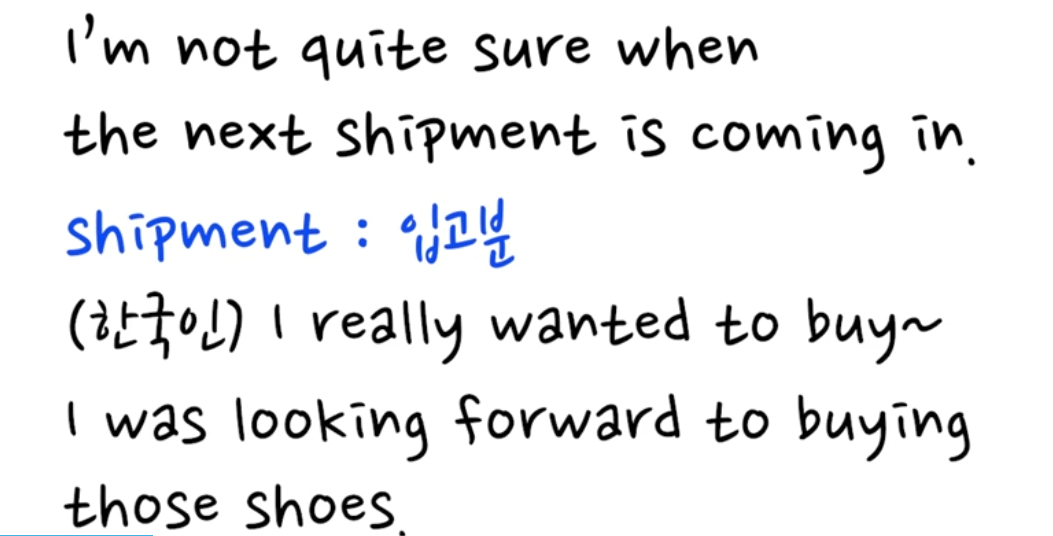 I'm not quite sure when
the next shipment is coming in.
shipment : 입고분
(한국인) I really wanted to buy~
I was looking forward to buying
those shoes.